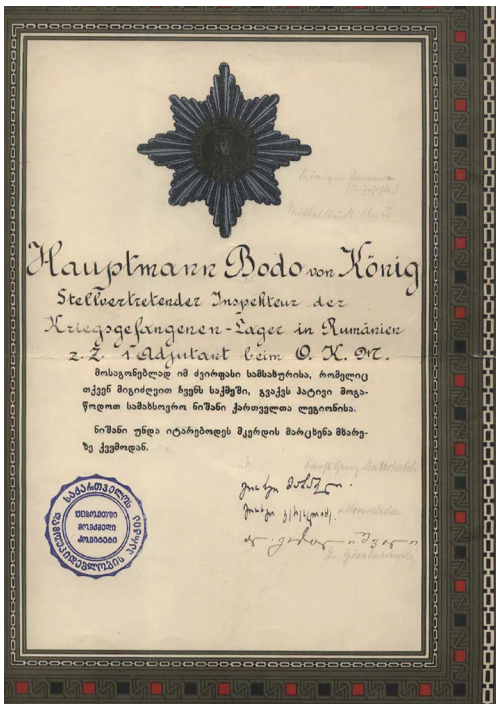 Hauptmann Bodo von König
Stellvertretender Inspekteur der
Kriegsgefangenen-Lager in Rumänien
z. Z. 1 Adjutant beim O. K. M.
მოსაგონებლად იმ ძვირფასი სამსახურისა, რომელიც
თქვენ მიგიძღვით ჩვენს საქმეში, გვაქვს პატივი მოგა-
წოდოთ სამახსოვრო ნიშანი ქართველთა ლეგიონისა.
ნიშანი უნდა იტარებოდეს მკერდის მარცხენა მხარე-
ზე ქვემოდან.
Georg Matschabelli
საქართველოს
დამოუკიდებლობის პარტია
უცხოეთში
მოქმედი
კომიტეტი